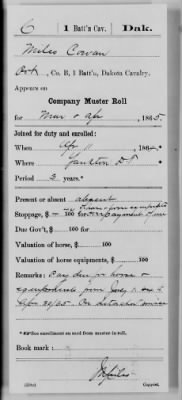 C | 1 Batt'n Cav. | Dak.
Miles Cowan
Pvt, Co. B, 1 Batt'n, Dakota Cavalry.
Appears on
Company Muster Roll
for Mar & Apr, 1865.
Joined for duty and enrolled:
When Apr 11, 186
Where Yankton D T
Period 3 years.*
Present or absent absent
Stoppage, $ 100 for overpayment of
Due Gov't, $ 100 for
Valuation of horse, $ 100
Valuation of horse equipments, $ 100
Remarks: Pay due for horse &
equipments from July 1
Apr 30/65. On detached service
*See enrollment on card from muster-in roll.
Book mark:
Copyist.